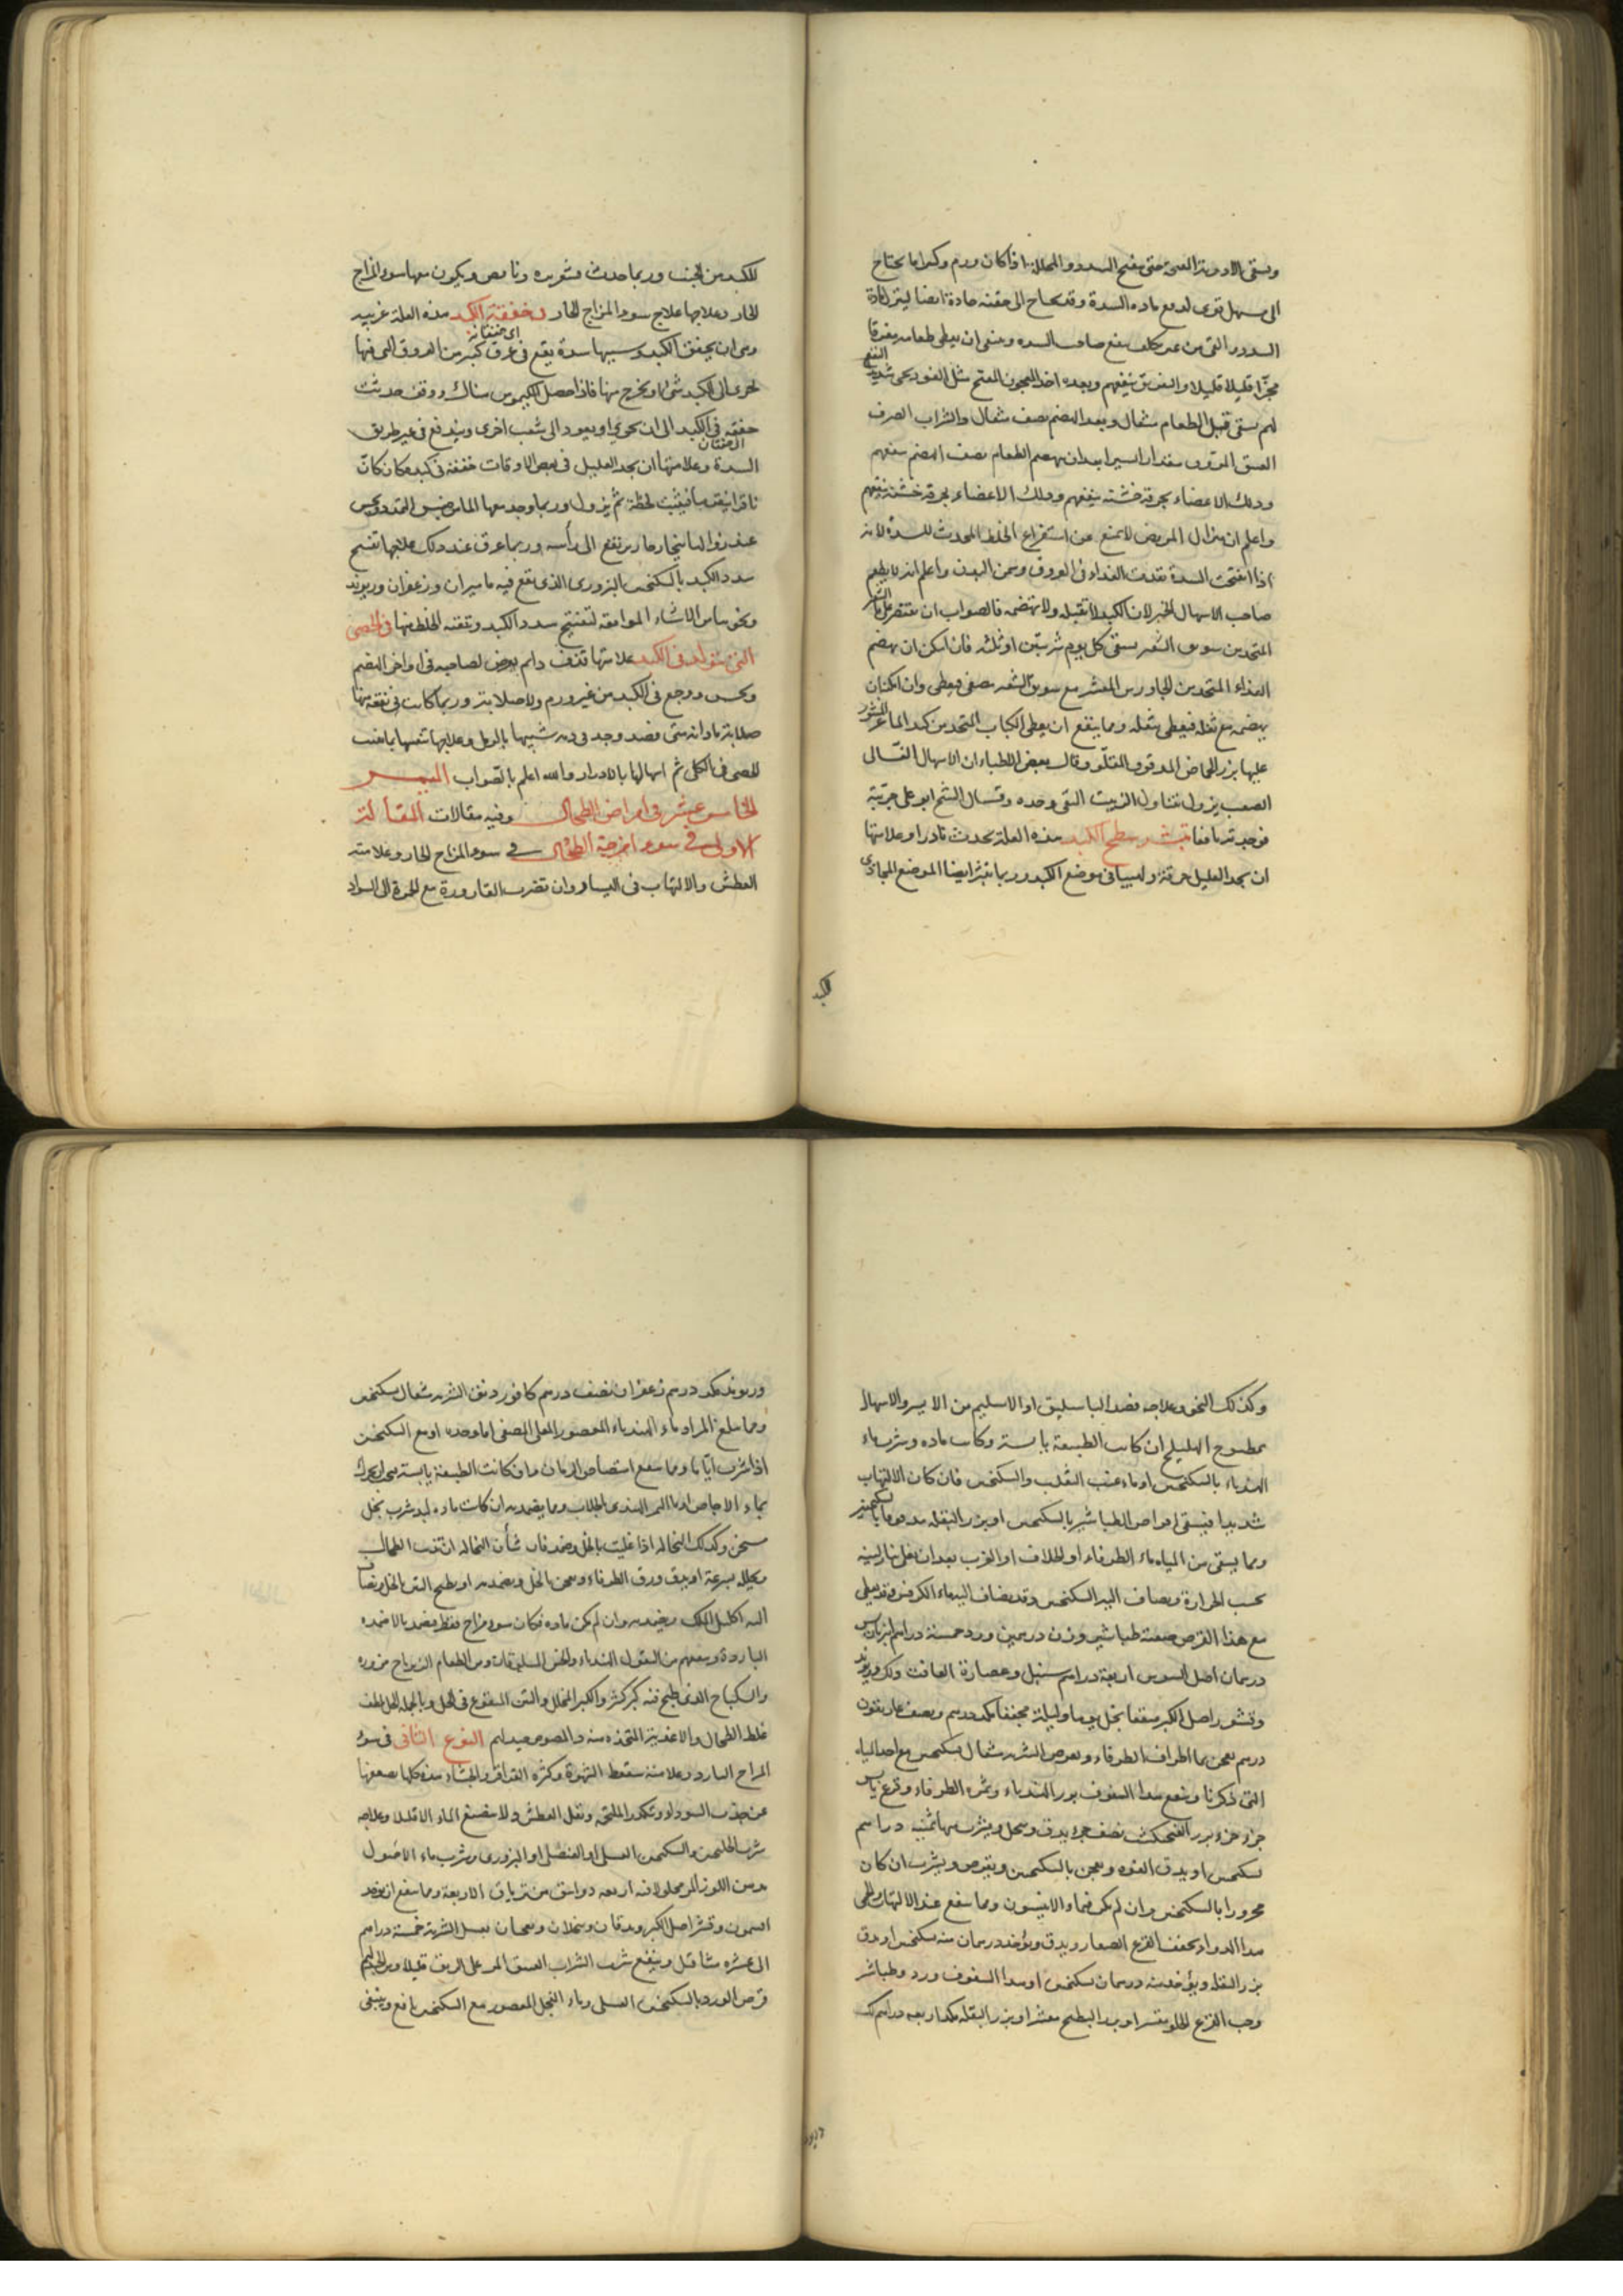 ويسقى الادوية حتى يفتح السدد والمحللة اذا كان ورم وكبرا ما يحتاج
الى مسهل قوى لدفع مادة السدة وقد يحتاج الى حقنه حادة ايضا لينزل المادة
السدد التى من ينفع صاحب السده وينبغى ان يعطى طعامه مفرقا
مجزّا قليلا قليلا والفستق ينفعهم وبعده اخذ المعجون المفتح مثل الفودنجى شديد النفع
لهم يسقى قبل الطعام مثقال وبعد الهضم نصف مثقال والشراب الصرف
العتيق المروق مقدارا يسيرا بعد ان يهضم الطعام نصف الهضم ينفعهم
ودلك الاعضاء بخرقة خشنه ينفعهم ودلك الاعضاء بخرقة خشنه ينفعهم
واعلم ان هزال المريض لا يمنع عن استفراغ الخلط المحدث للسدة لانه
اذا انفتحت السدة نفذت الغذاء فى العروق وسمن البدن واعلم انه لا يطعم
صاحب الاسهال الخبز لان الكبد لا تقبله ولا تهضمه فالصواب ان يقتصر على ماء الشعير
المتخذ من سويق الشعير يسقى كل يوم شربتين او ثلثه فان امكن ان يهضم
الغذاء المتخذ من الجاورس المقشر مع سويق الشعير مصفى فيعطى وان امكن ان
يهضمه مع ثفله فيعطى بثفله ومما ينفع ان يعطى الكباب المتخذ من كبد الماعز المنثور
عليها بزر الحماض المدقوق المقلّو وقال بعض الاطباء ان الاسهال القتال
الصعب يزول بتناول الزبيب التقى وحده وقال الشيخ ابو على جرّبته
فوجدته نافعا تبثر سطح الكبد هذه العلة تحدث نادرا وعلامتها
ان يجد العليل حرقة ولهيبا فى موضع الكبد وربما تبثر ايضا الموضع المحاذى
الكبد
للكبد من الجنب وربما حدث قشعريره ونافض ويكون معها سوء المزاج
الحار وعلاجها علاج سوء المزاج الحار فى خفقة الكبد هذه العلة غريبه
اى خفقانة
وهى ان يخفق الكبد وسببها سدة يقع فى عرق كبير من العروق التى فيها
يجرى الى الكبد شئ او يخرج منها فاذا حصل الكيموس هناك ووقف حدثت
خفقه فى الكبد الى ان يجرى او يعود الى شعب اخرى ويندفع فى غير طريق
الخفقان
السدة وعلامتها ان يجد العليل فى بعض الاوقات خفقه فى كبده كان كانّ
ناقرا ينقرها فيثبت لحظة ثم يزول وربما وجد معها الماء وتمدد ويحس
عند زوالها ببخار حار يرتفع الى رأسه وربما عرق عند ذلك علاجها تفتيح
سدد الكبد بالسكنجبين البزورى الذى يقع فيه ماميران وزعفران وريوند
ونحوها من الاشياء الموافقه لتفتيح سدد الكبد وتنقيه الخلط منها فى الحصى
التى تتولد فى الكبد علامتها قذف دايم يعرض لصاحبه فى اواخر الهضم
ويحس ووجع فى الكبد من غير ورم ولا صلابة وربما كانت فى نفقة منها
صلابة نادرانه متى فصد وجد فى دمه شبيها بالرمل وعلاجها تفتيتها بما يفتت
الحصى فى الكلى ثم اسهالها بالادرار والله اعلم بالصواب
الخامس عشر فى امراض الطحال وفيه مقالات المقالة
الاولى فى سوء امزجة الطحال فى سوء المزاج الحار وعلامته
العطش والالتهاب فى اليسار وان تضرب القارورة مع الحمرة الى السواد
وكذلك النحو وعلاجه فصد الباسليق او الاسليم من الايسر والاسهال
بمطبوخ الهليلج ان كانت الطبيعة يابسة وكانت ماده وشرب ماء
الهندباء بالسكنجبين او ماء عنب الثعلب والسكنجبين فان كان الالتهاب
شديدا فيسقى اقراص الطباشير بالسكنجبين او بزر البقله مدقوقا بالسكنجبين
ومما يسقى من المياه ماء الطرفاء او الخلاف او الغرب بعد ان يغلى بنار لينه
بحسب الحرارة ويضاف اليه السكنجبين وقد يضاف اليه ماء الكرفس وقد يعطى
مع هذا القرص صفته طباشير وزن درهمين ورد خمسة دراهم انبرباريس
درهمان اصل السوس اربعة دراهم سنبل وعصارة الغافت ولك وريوند
وقشور اصل الكبر منقعا بخل يوما وليلة مجففا مكد درهم ونصف غاريقون
درهم يعجن بماء اطراف الطرفاء ويقرص الشربه مثقال بسكنجبين مع احد المياه
التى ذكرنا وينفع هذا السفوف بزر الهندباء وثمره الطرفاء وقرع يابس
جزء جزء بزر الفنجنكشت نصف جزء يدق وينخل ويشرب منها ثلثه دراهم
بسكنجبين او يدق الفوه ويعجن بالسكنجبين ويقرص ويشرب ان كان
محرورا بالسكنجبين وان لم يكن فبماء الانيسون ومما ينفع عند الالتهاب والحمى
هذا الدواء يجفف القرع الصغار ويدق ويؤخذ درهمان منه بسكنجبين او دق
بزر البقله ويؤخذ منه درهمان بسكنجبين او هذا السفوف ورد وطباشير
وحب القرع الحلو مقشر او بزر البطيخ مقشر او بزر البقله مكد اربعه دراهم لك
وريوند
وريوند مكد درهم زعفران نصف درهم كافور دنق الشربه مثقال بسكنجبين
ومما يبلغ المراد ماء الهندباء المعصور المغلى المصفى اما وحده او مع السكنجبين
اذا شرب ايّاما ومما ينفع امتصاص الرمان وان كانت الطبيعة يابسة
بماء الاجاص او ماء التمر الهندى والجلاب ومما يضمد به ان كانت ماده لبد شرب بخل
مسخن وكذلك النخاله اذا غليت بالخل وضمد فان شأن النخاله ان تذب الطحال
وتحلله بسرعة او يدق ورق الطرفاء ويعجن بالخل ويضمد به او يطبخ التين بالخل ويضاف
اليه اكليل الملك ويضمد به وان لم يكن ماده وكان سوء مزاج فقط فيضمد بالاضمده
البارده وينفعهم من البقول الهندباء والخس والسلق ومن الطعام الزيرباج مزوره
والسكباج الذى طبخ فيه كبر كثير والكبر المخلل والتين المنقوع فى الخل وبالجمله الخل يلطف
غلظ الطحال والاغذية المتخذه منه والمصوص جيد لهم النوع الثانى فى سوء
المزاج البارد وعلامته سقوط الشهوة وكثره القراقر والجشاء هذه كلها بضعفها
عن جذب السوداء وتكدر الملتحم وثقل العطش ولا ينصبغ الماء الا قليلا وعلاجه
شرب الجلنجبين والسكنجبين العسلى او العنصلى او البزورى وشرب ماء الاصول
بدهن اللوز المر محلولا فيه اربعه دوانيق من ترياق الاربعة ومما ينفع ان يؤخذ
الكمون وقشر اصل الكبر ويدقان وينخلان ويعجنان بعسل الشربه خمسة دراهم
الى عشره مثاقيل وينفع شرب الشراب العتيق المر على الريق قليلا ومن
قرص الورد بالسكنجبين العسلى وماء الفجل المعصور مع السكنجبين نافع وينبغى